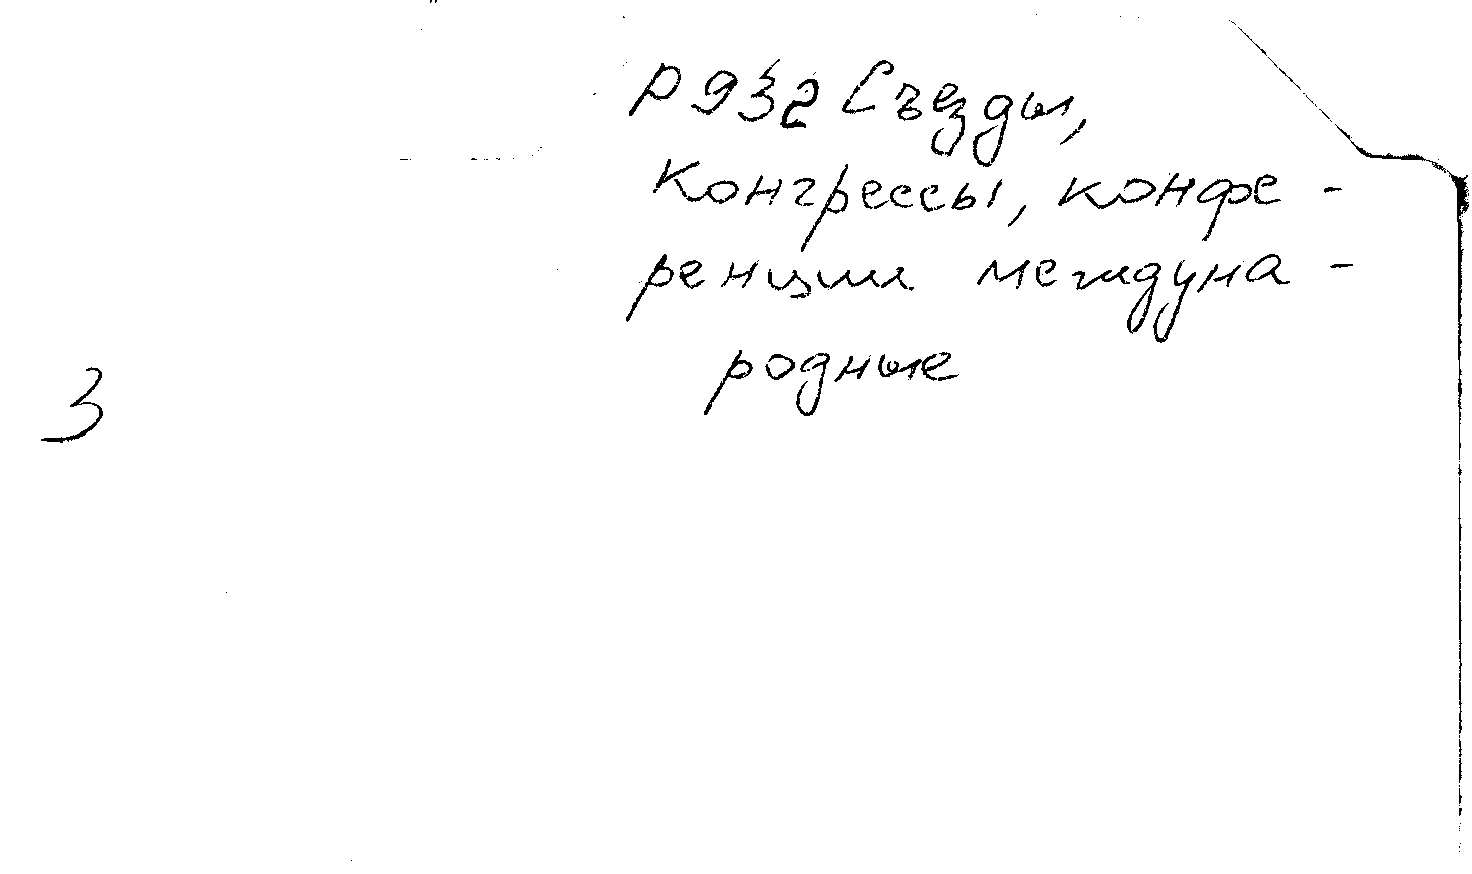 Р 932 Съезды,
Конгрессы, конфе-
ренции междуна-
родные
3